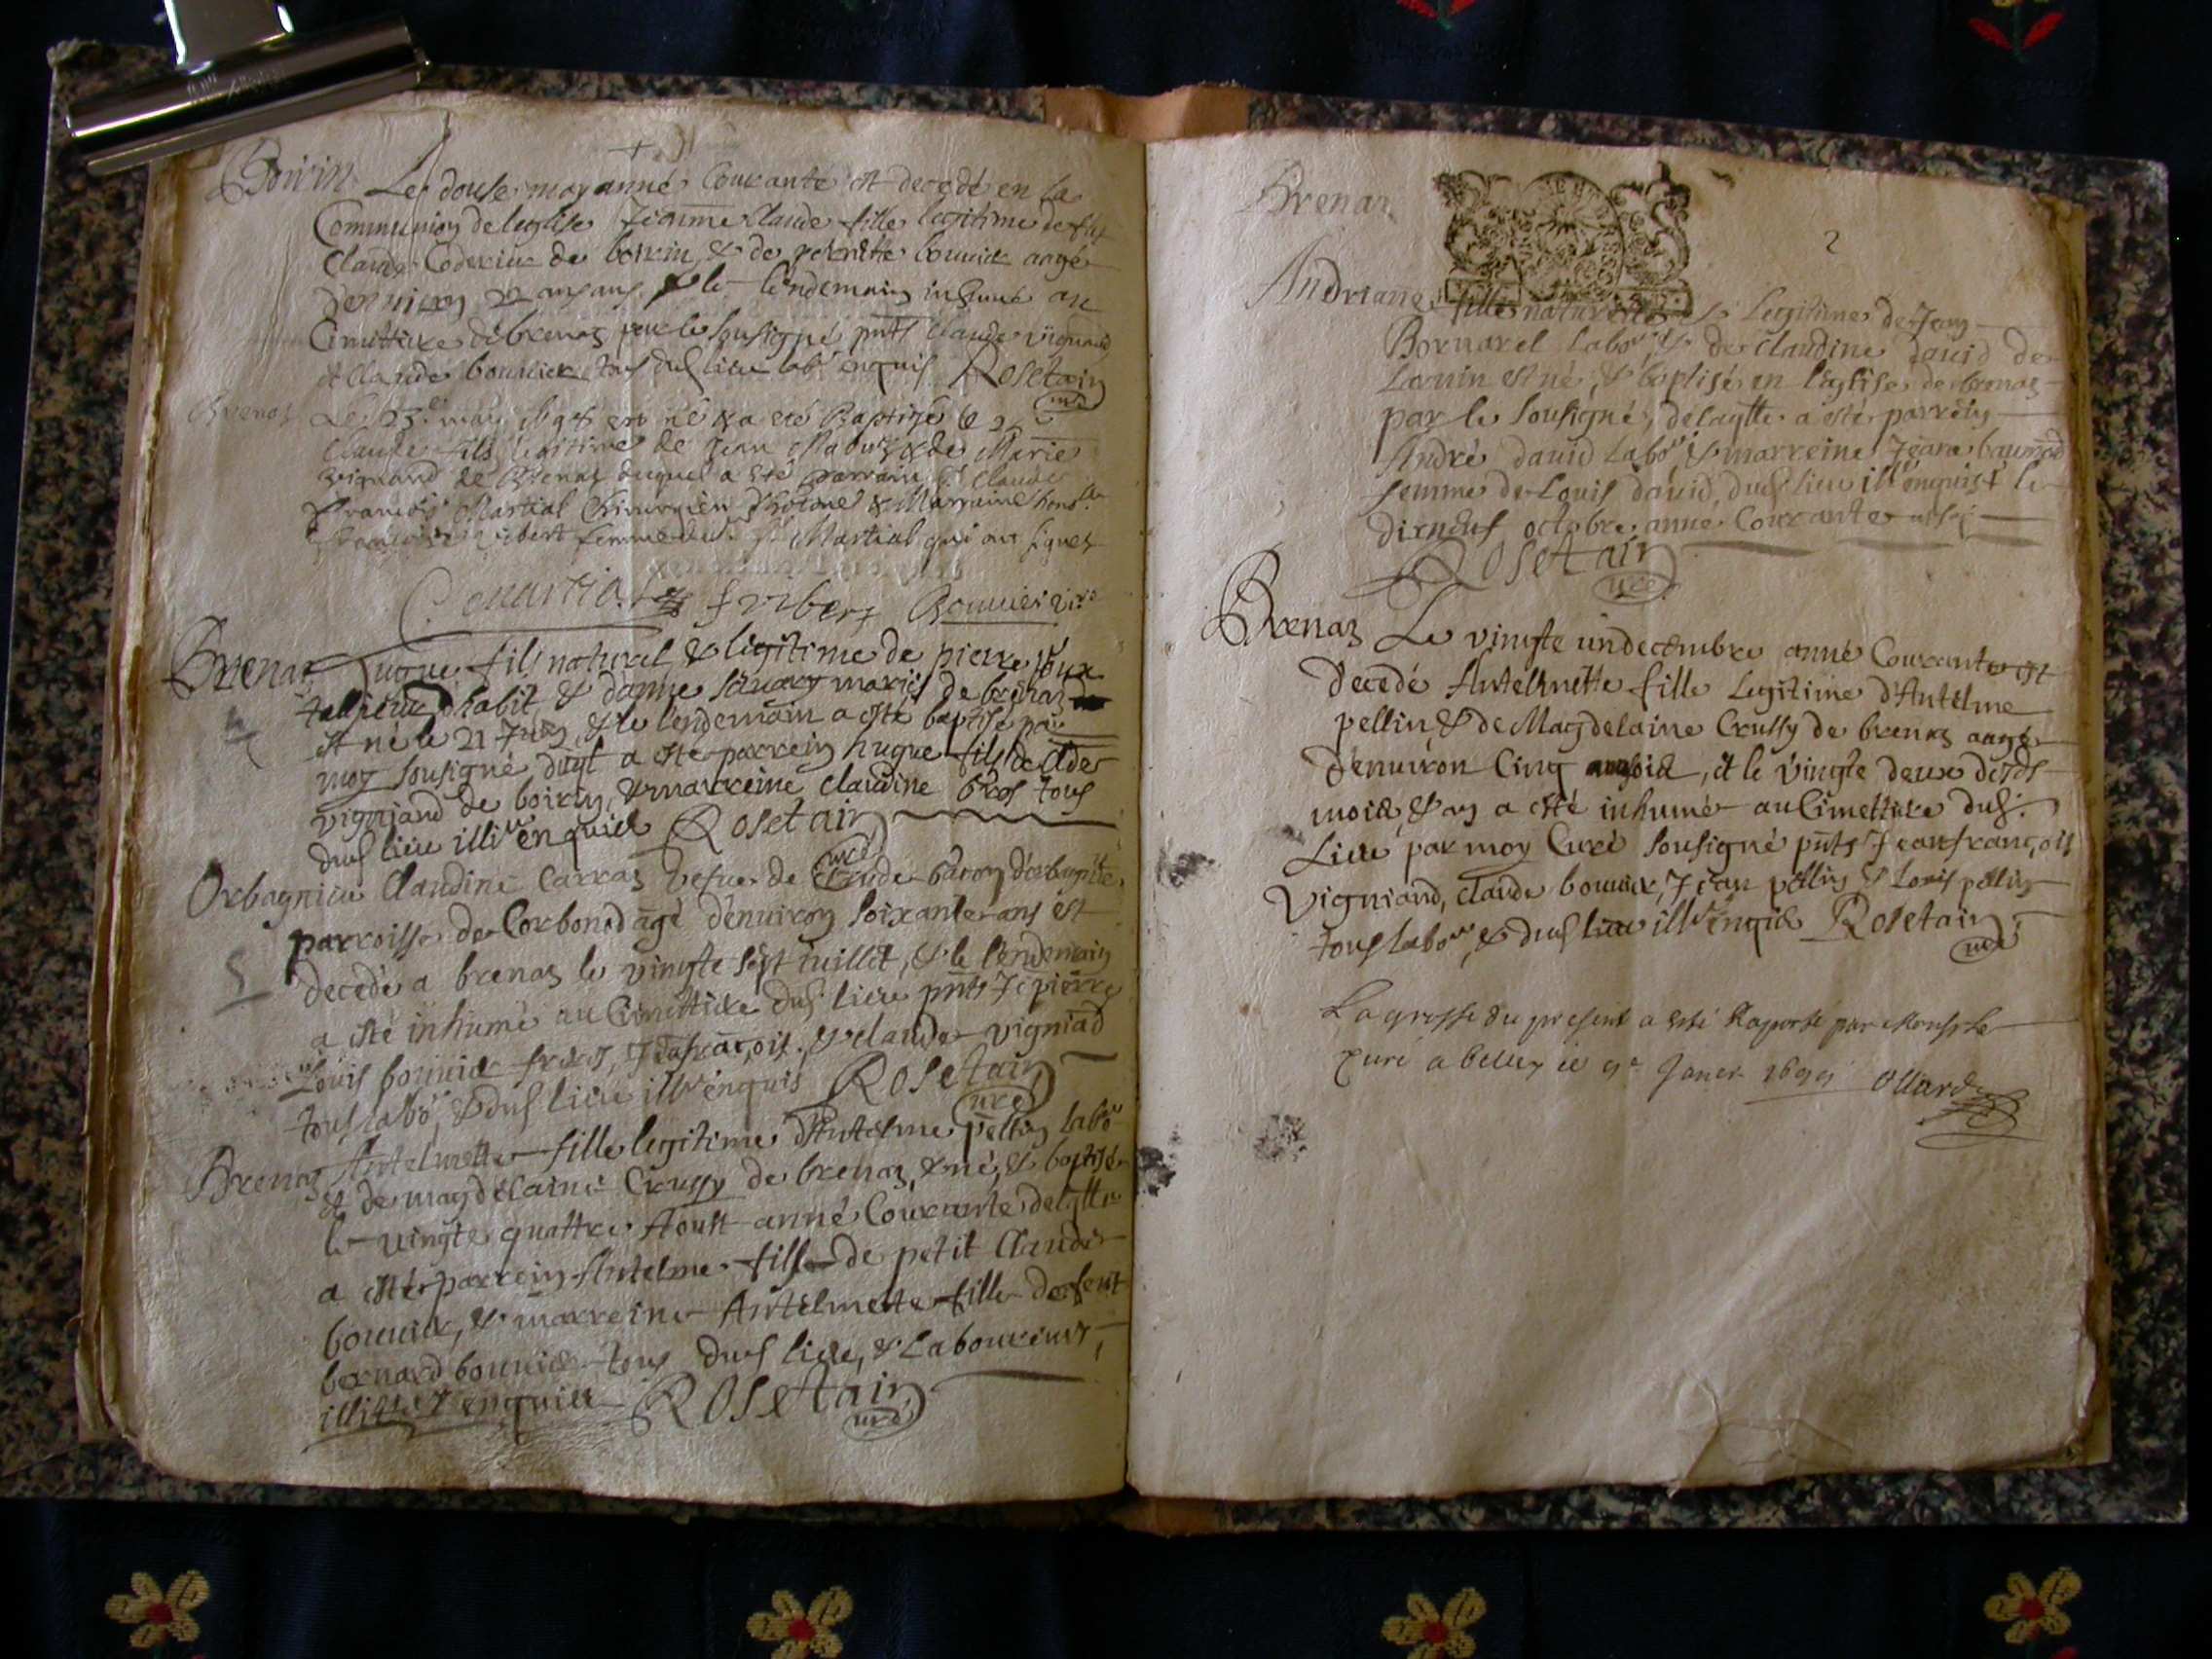 Boirin Le douse may anné Courante est decedé en la
Communion de leglise Jeanne Claude fille legitime de feu
Claude de boirin, & de pernette bouvier aagé
d'environ ans & le lendemain inhumé au
Cimettiere de brenaz par le sousigné pnts Claude vignand
et Claude bouvier tous dud lieu labo enquis Rosetain
curé
Brenaz Le 23e may est né & a eté Baptizé le 25
Claude fils legitime de Jean & de Marie
vignand de Brenaz duquel a eté parrain Sr Claude
François Martial Chirurgien & Marraine hono
françoise vibert femme dud Sr Martial qui ont signez
C Martial f vibert Bouvier vi
Brenaz hugue fils natural & legitime de pierre
tallieur d'habit & d'anne mariés de brenaz
est né le 21 & le lendemain a esté baptisé par
moy sousigné duql a esté parrein hugue fils de
vigniand de boirin, & marreine claudine tous
dud lieu illi enquis Rosetain
curé
Orbagnieu Claudine Carraz vefue de Claude baron d'orbagnieu
parroisse de Corbonod agé d'environ soixante ans est
decedé a brenaz le vingte sept juillet, & le lendemain
a esté inhumé au Cimettiere dud lieu pnts pierre
Louis bouvier freres, françois, & claude vigniad
tous labo, & dud lieu ill enquis Rosetain
curé
Brenaz Antelmette fille legitime d'Antelme pellin labo
& de magdelaine Crussy de brenaz, & né, & baptisé
le vingte quattre Aoust anné Courante delqlle
a esté parrein Antelme fils de petit Claude
bouvier, & marreine Antelmette fille de feut
bernard bouvier tous dud lieu, & Laboureurs,
illi enquis Rosetain
curé
Brenaz
2
Andriane fille naturelle & Legitime de Jean
Bornarel Labo & de Claudine david de
Lavuin est né, & baptisé en l'eglise de brenaz
par le sousigné, delaqlle a esté parrein
André david Labo & marreine Jeana
femme de Louis david, dud lieu ill enquis & le
dixneuf octobre anné Courante
Rosetain
curé
Brenaz Le vingte un decembre anné Courante est
decedé Antelmette fille Legitime d'Antelme
pellin, & de Magdelaine Crussy de brenaz aagé
d'environ Cinq mois, et le vingte deux desds
mois, & an a esté inhumé au Cimettiere dud
Lieu par moy Curé sousigné pnts Jean françois
Vigniand, claude bouvier, Jean pellin & Louis pellin
tous labo, & dud lieu ill enquis Rosetain
curé
La grosse du present a esté Raporté par monsr le
Curé a belley le 9e Janer 1695 Ollard